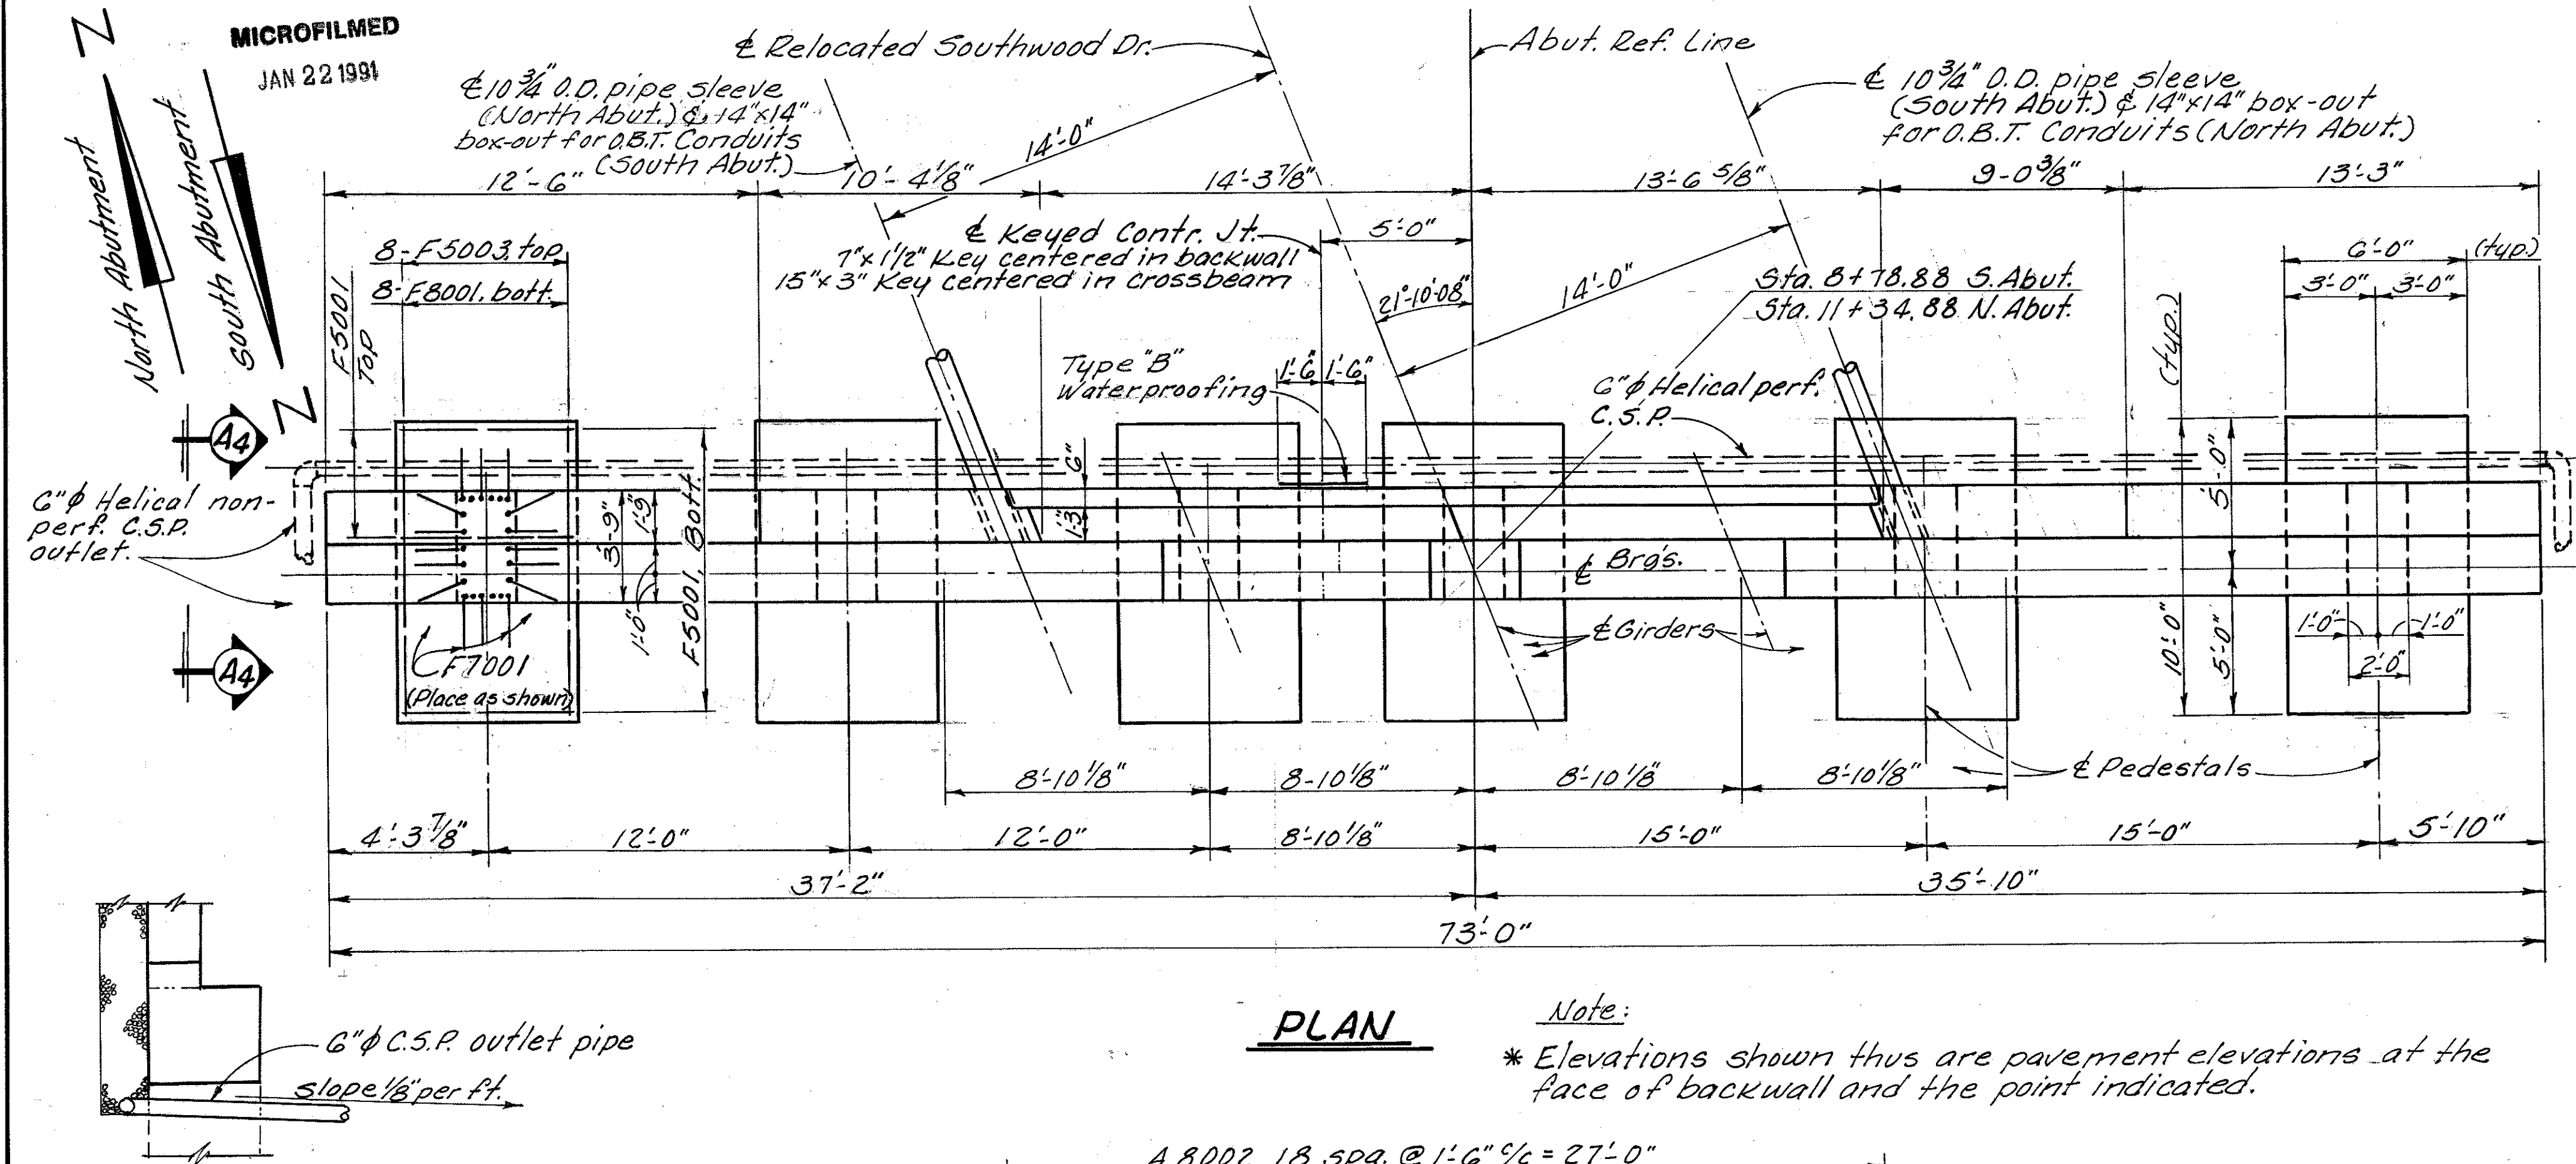 MICROFILMED
JAN 22 1991
Z
Z
North Abutment
South Abutment
℄ Relocated Southwood Dr.
Abut. Ref. Line
℄ 10 3/4" O.D. pipe sleeve
(North Abut.) & 14"x14"
box-out for O.B.T. Conduits
(South Abut.)
℄ 10 3/4" O.D. pipe sleeve
(South Abut.) & 14"x14" box-out
for O.B.T. Conduits (North Abut.)
14'-0"
12'-6"
10'-4 1/8"
14'-3 7/8"
13'-6 5/8"
9-0 3/8"
13'-3"
℄ Keyed Contr. Jt.
7"x 1 1/2" Key centered in backwall
15"x 3" Key centered in crossbeam
5'-0"
21°-10'-08"
14'-0"
Sta. 8+78.88 S. Abut.
Sta. 11+34.88 N. Abut.
6'-0" (typ.)
3'-0" 3'-0"
8-F5003, top
8-F8001, bott.
F5001
Top
Type "B"
Waterproofing
1'-6" 1'-6"
6"ϕ Helical perf.
C.S.P.
(typ.)
A4
6"ϕ Helical non-
perf. C.S.P.
outlet.
3'-9"
1'-9"
1'-0"
F5001, Bott.
6"
1'-3"
℄ Brg's.
5'-0"
10'-0"
5'-0"
1'-0" 1'-0"
2'-0"
℄ Girders
A4
F7001
(Place as shown)
℄ Pedestals
8'-10 1/8"
8-10 1/8"
8'-10 1/8"
8'-10 1/8"
4'-3 7/8"
12'-0"
12'-0"
8'-10 1/8"
15'-0"
15'-0"
5'-10"
37'-2"
35'-10"
73'-0"
PLAN
Note:
* Elevations shown thus are pavement elevations at the
face of backwall and the point indicated.
6"ϕ C.S.P. outlet pipe
slope 1/8" per ft.
A 8002 18 spa. @ 1'-6" c/c = 27'-0"